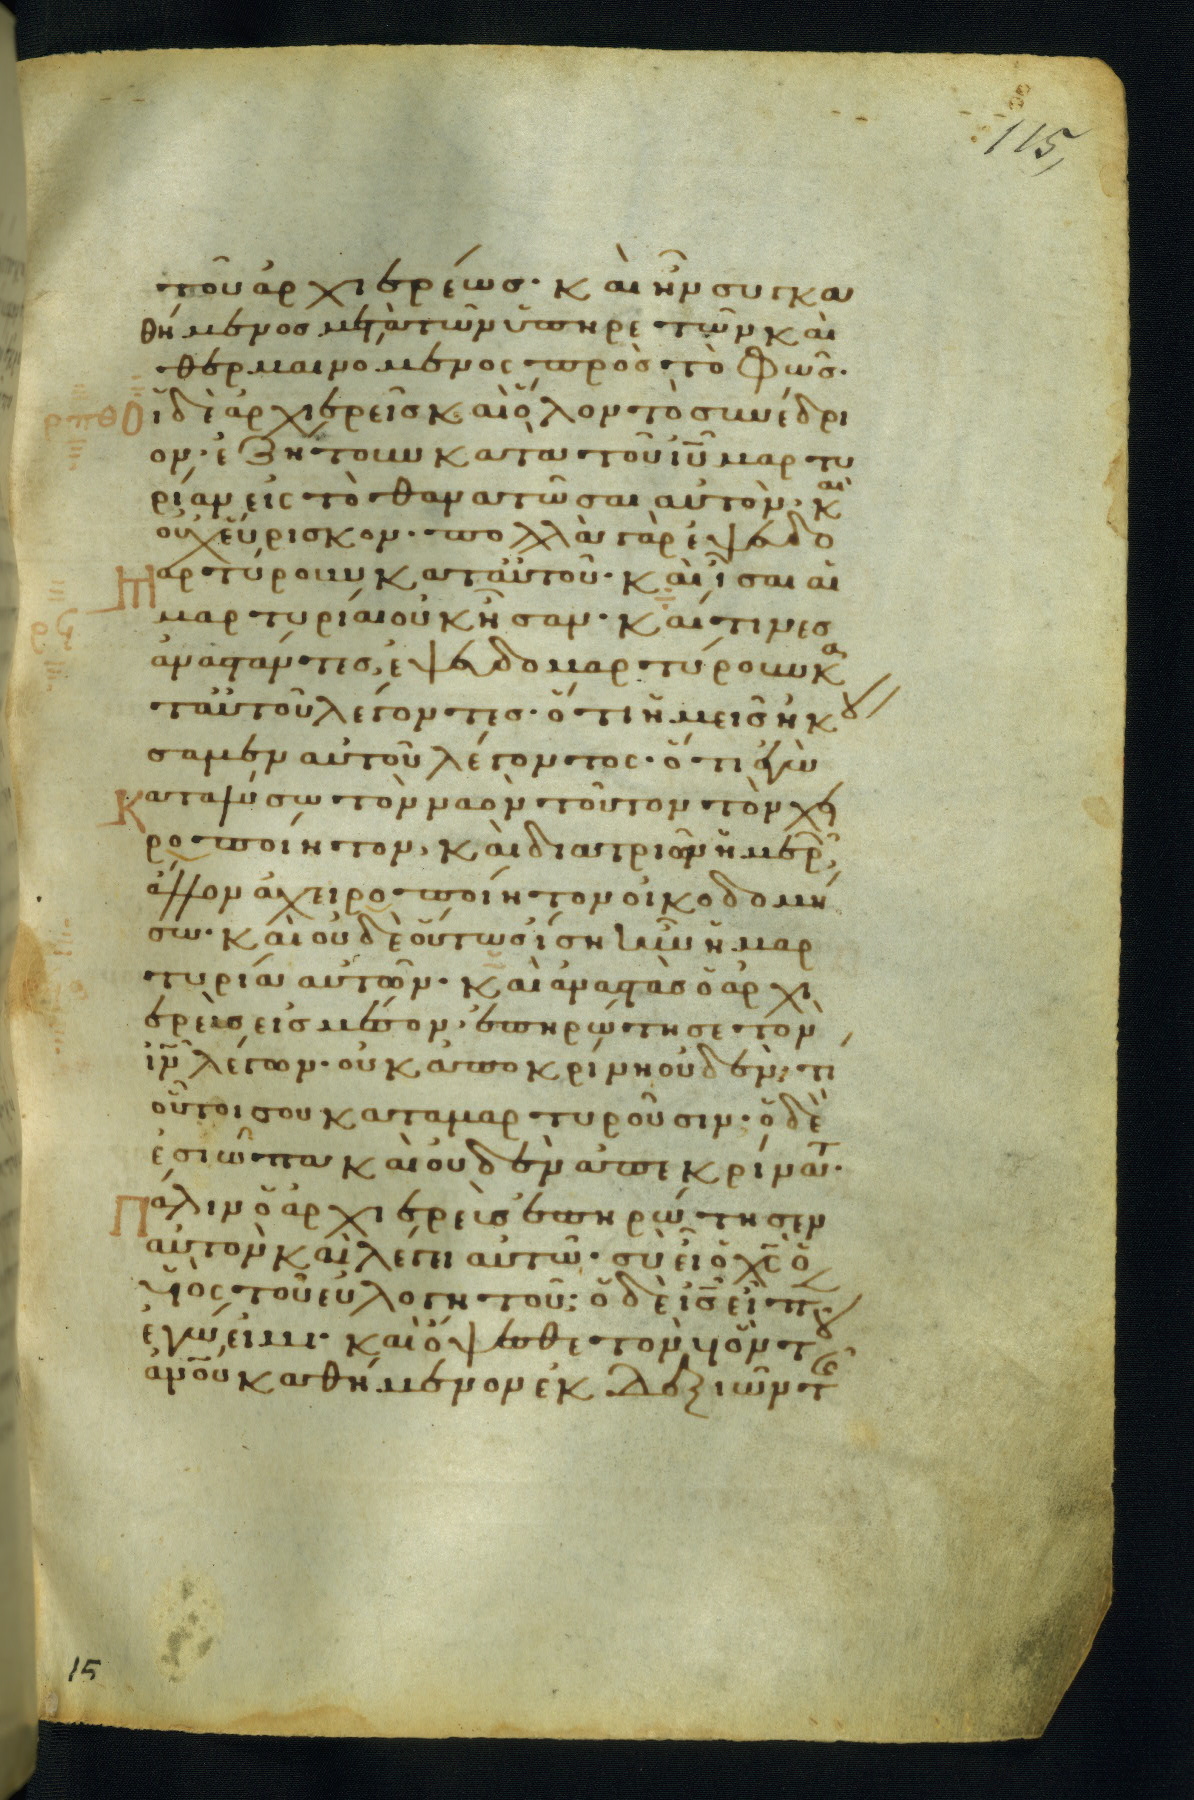 115
τοῦ ἀρχιερέως· καὶ ἦν συγκα
θήμενος μετὰ τῶν ὑπηρετῶν καὶ
θερμαινόμενος πρὸς τὸ φῶς·
Οἱ δὲ ἀρχιερεῖς καὶ ὅλον τὸ συνέδρι
ον· ἐζήτουν κατὰ τοῦ ἰῦ μαρτυ
ρίαν εἰς τὸ θανατῶσαι αὐτὸν· κ(αὶ)
οὐχ εὕρισκον· πολλὰ γὰρ ἐψευδο
μαρτύρουν κατ' αὐτοῦ· καὶ ἴσαι αἱ
μαρτυρίαι οὐκ ἦσαν· καί τινες
ἀναστάντες, ἐψευδομαρτύρουν κα
τ' αὐτοῦ λέγοντες· ὅτι ἡμεῖς ἠκού
σαμεν αὐτοῦ λέγοντος· ὅτι ἐγὼ
Καταλύσω τὸν ναὸν τοῦτον τὸν χει
ροποίητον, καὶ διὰ τριῶν ἡμερῶν
ἄλλον ἀχειροποίητον οἰκοδομή
σω· καὶ οὐδὲ οὕτως ἴση ἦν ἡ μαρ
τυρία αὐτῶν· καὶ ἀναστὰς ὁ ἀρχι
ερεὺς εἰς μέσον, ἐπηρώτησε τὸν
ἰν λέγων· οὐκ ἀποκρίνη οὐδέν; τί
οὗτοί σου καταμαρτυροῦσιν· ὁ δὲ
ἐσιώπα καὶ οὐδὲν ἀπεκρίνατ·
Πάλιν ὁ ἀρχιερεὺς ἐπηρώτησεν
αὐτὸν καὶ λέγει αὐτῶ· σὺ εἶ ὁ χς ὁ
υἱὸς τοῦ εὐλογητοῦ; ὁ δὲ ις εἶπεν
ἐγώ εἰμι· καὶ ὄψεσθε τὸν υἱὸν τοῦ
ἀνου καθήμενον ἐκ δεξιῶν τῆς
15